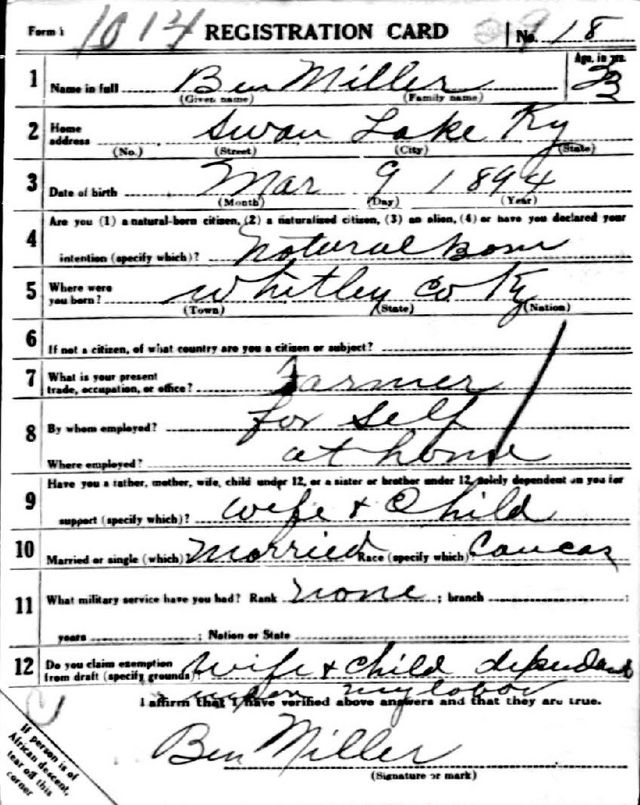 Form 1 1014 REGISTRATION CARD No. 18
1 Name in full Ben Miller Age, in yrs. 23
(Given name) (Family name)
2 Home address Swan Lake Ky
(No.) (Street) (City) (State)
3 Date of birth Mar 9 1894
(Month) (Day) (Year)
4 Are you (1) a natural-born citizen, (2) a naturalized citizen, (3) an alien, (4) or have you declared your
intention (specify which)? Natural Born
5 Where were you born? Whitley Co Ky
(Town) (State) (Nation)
6 If not a citizen, of what country are you a citizen or subject?
7 What is your present trade, occupation, or office? Farmer
8 By whom employed? for self
Where employed? at home
9 Have you a father, mother, wife, child under 12, or a sister or brother under 12, solely dependent on you for
support (specify which)? wife + Child
10 Married or single (which)? Married Race (specify which) Caucas
11 What military service have you had? Rank none ; branch ;
years ; Nation or State
12 Do you claim exemption from draft (specify grounds) wife + child dependent
upon my labor
I affirm that I have verified above answers and that they are true.
Ben Miller
(Signature or mark)
If person is of
African descent,
tear off this
corner